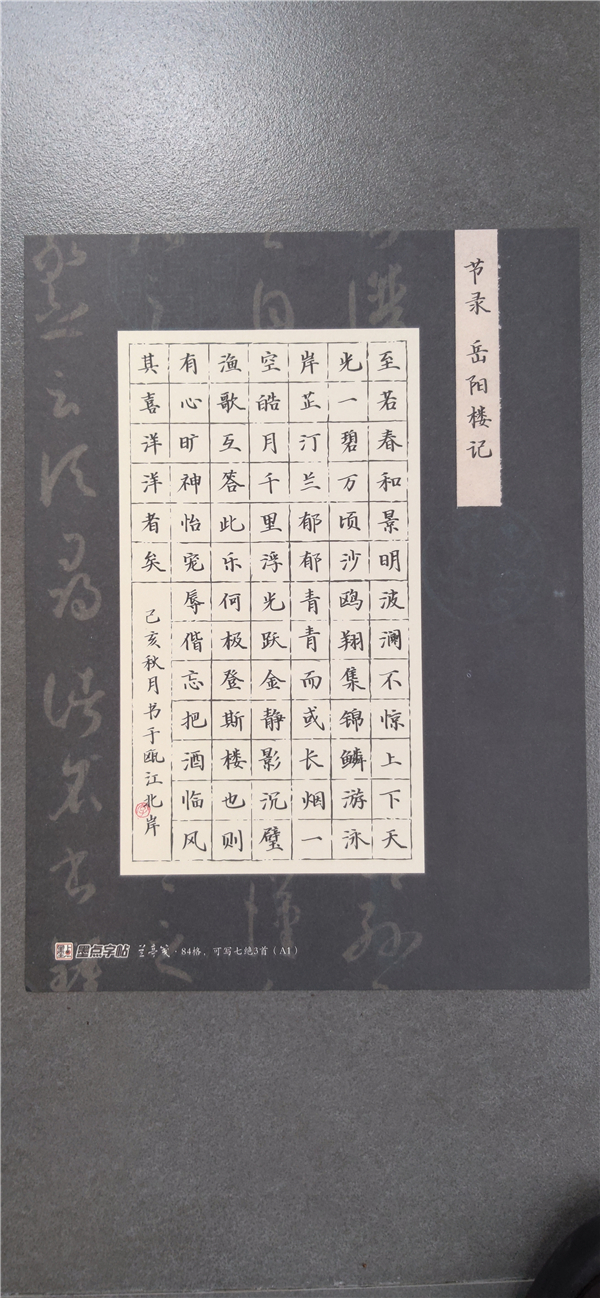 节录 岳阳楼记
至若春和景明波澜不惊上下天
光一碧万顷沙鸥翔集锦鳞游泳
岸芷汀兰郁郁青青而或长烟一
空皓月千里浮光跃金静影沉璧
渔歌互答此乐何极登斯楼也则
有心旷神怡宠辱偕忘把酒临风
其喜洋洋者矣
己亥秋月书于瓯江北岸
墨点字帖 兰亭·84格，可写七绝3首（A1）